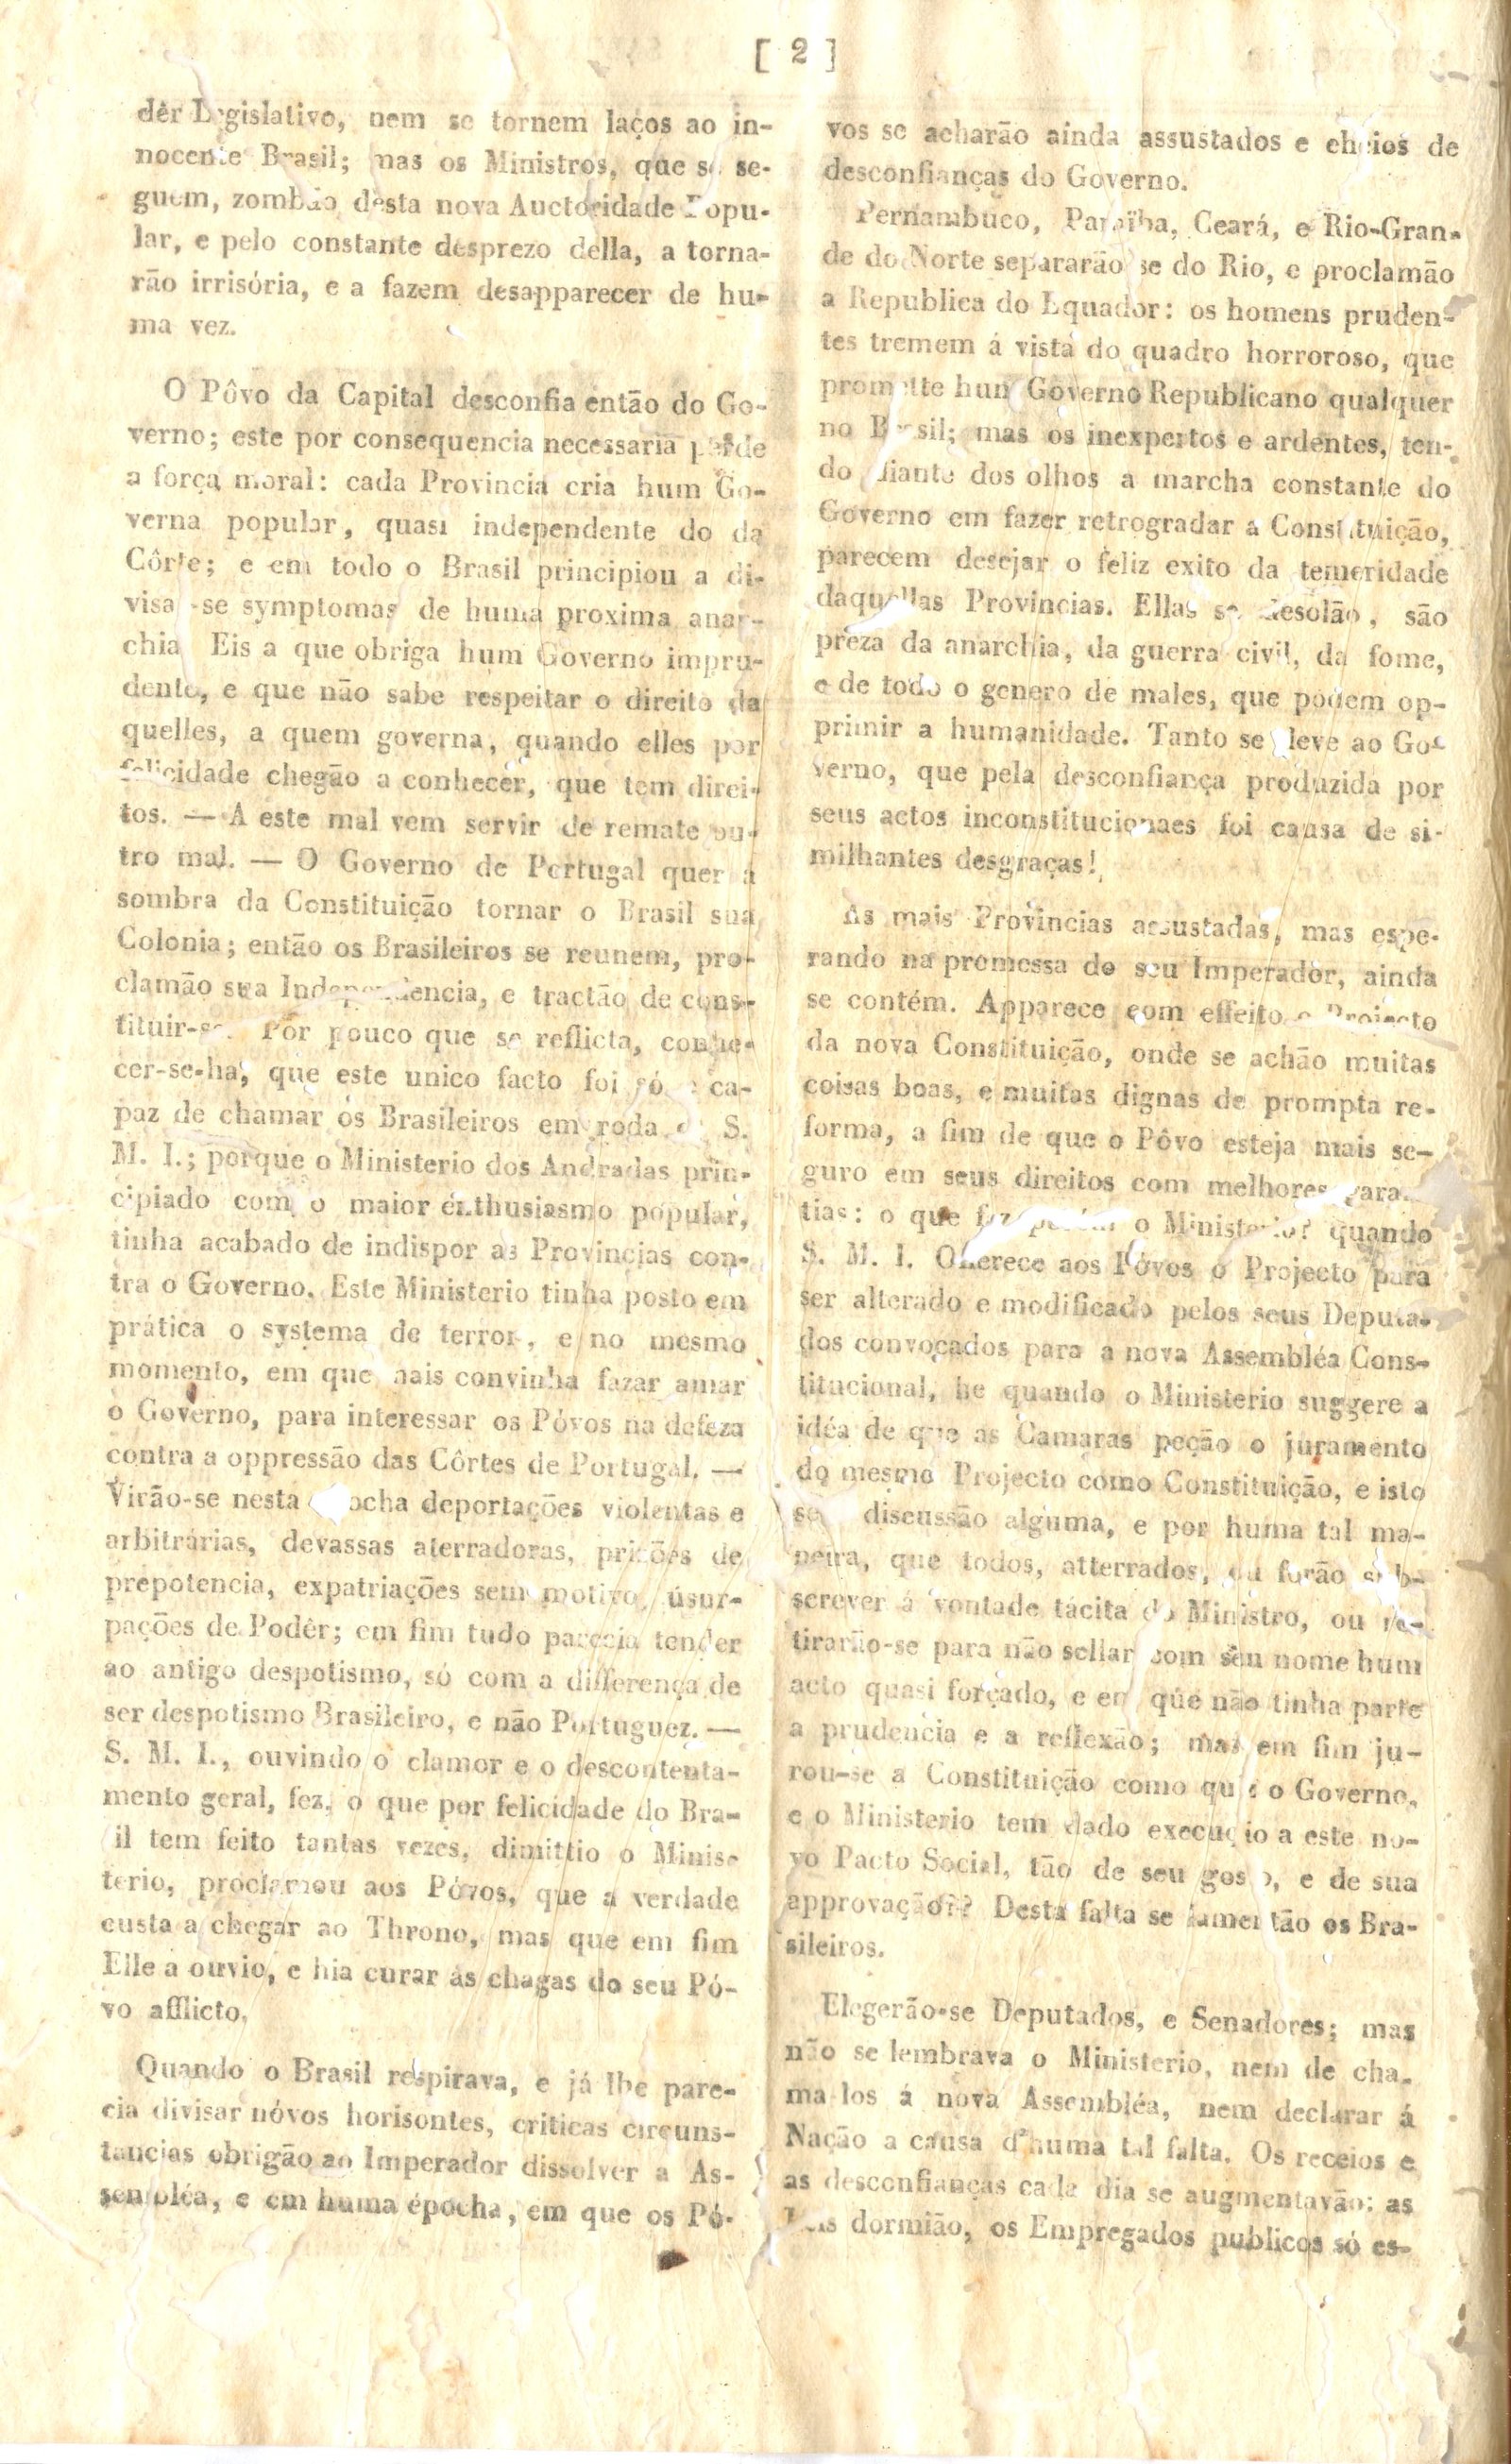 [ 2 ]
dêr Legislativo, nem se tornem laços ao in-
nocente Brasil; mas os Ministros, que se se-
guem, zombão desta nova Auctoridade Popu-
lar, e pelo constante desprezo della, a torna-
rão irrisória, e a fazem desapparecer de hu-
ma vez.
O Pôvo da Capital desconfia então do Go-
verno; este por consequencia necessaria perde
a força moral: cada Provincia cria hum Go-
verna popular, quasi independente do da
Côrte; e em todo o Brasil principiou a di-
visar-se symptomas de huma proxima anar-
chia Eis a que obriga hum Governo impru-
dente, e que não sabe respeitar o direito da
quelles, a quem governa, quando elles por
felicidade chegão a conhecer, que tem direi-
tos. — A este mal vem servir de remate ou-
tro mal. — O Governo de Portugal quer á
sombra da Constituição tornar o Brasil sua
Colonia; então os Brasileiros se reunem, pro-
clamão sua Independencia, e tractão de cons-
tituir-se. Por pouco que se reflicta, conhe-
cer-se-ha, que este unico facto foi só ca-
paz de chamar os Brasileiros em roda de S.
M. I.; porque o Ministerio dos Andradas prin-
cipiado com o maior enthusiasmo popular,
tinha acabado de indispor as Provincias con-
tra o Governo. Este Ministerio tinha posto em
prática o systema de terror, e no mesmo
momento, em que mais convinha fazar amar
o Governo, para interessar os Póvos na defeza
contra a oppressão das Côrtes de Portugal. —
Virão-se nesta deportações violentas e
arbitrárias, devassas aterradoras, prizões de
prepotencia, expatriações sem motivo, úsur-
pações de Podêr; em fim tudo parecia tender
ao antigo despotismo, só com a differença de
ser despotismo Brasileiro, e não Portuguez. —
S. M. I., ouvindo o clamor e o descontenta-
mento geral, fez, o que por felicidade do Bra-
sil tem feito tantas vezes, dimittio o Minis-
terio, proclamou aos Póvos, que a verdade
custa a chegar ao Throno, mas que em fim
Elle a ouvio, e hia curar as chagas do seu Pó-
vo afflicto.
Quando o Brasil respirava, e já lhe pare-
cia divisar nóvos horisontes, criticas circuns-
tancias obrigão ao Imperador dissolver a As-
sembléa, e em huma épocha, em que os Pó-
vos se acharão ainda assustados e cheios de
desconfianças do Governo.
Pernambuco, Paraïba, Ceará, e Rio-Gran-
de do Norte separarão se do Rio, e proclamão
a Republica do Equador: os homens pruden-
tes tremem á vista do quadro horroroso, que
promette hum Governo Republicano qualquer
no Brasil; mas os inexpertos e ardentes, ten-
do diante dos olhos a marcha constante do
Governo em fazer retrogradar a Constituição,
parecem desejar o feliz exito da temeridade
daquellas Provincias. Ellas se desolão, são
preza da anarchia, da guerra civil, da fome,
e de todo o genero de males, que podem op-
primir a humanidade. Tanto se deve ao Go-
verno, que pela desconfiança produzida por
seus actos inconstitucionaes foi causa de si-
milhantes desgraças!
As mais Provincias assustadas, mas espe-
rando na promessa do seu Imperador, ainda
se contém. Apparece com effeito o Projecto
da nova Constituição, onde se achão muitas
coisas boas, e muitas dignas de prompta re-
forma, a fim de que o Pôvo esteja mais se-
guro em seus direitos com melhores garan-
tias: o que fez porém o Ministerio? quando
S. M. I. Offerece aos Póvos o Projecto para
ser alterado e modificado pelos seus Deputa-
dos convocados para a nova Assembléa Cons-
titucional, he quando o Ministerio suggere a
idéa de que as Camaras peção o juramento
do mesmo Projecto como Constituição, e isto
sem discussão alguma, e por huma tal ma-
neira, que todos, atterrados, ou forão sub-
screver á vontade tácita do Ministro, ou re-
tirarão-se para não sellar com seu nome hum
acto quasi forçado, e em que não tinha parte
a prudencia e a reflexão; mas em fim ju-
rou-se a Constituição como quiz o Governo,
e o Ministerio tem dado execução a este no-
vo Pacto Social, tão de seu gosto, e de sua
approvação?? Desta falta se lamentão os Bra-
sileiros.
Elegerão-se Deputados, e Senadores; mas
não se lembrava o Ministerio, nem de cha-
ma-los á nova Assembléa, nem declarar á
Nação a causa d'huma tal falta. Os receios e
as desconfianças cada dia se augmentavão: as
Leis dormião, os Empregados publicos só es-